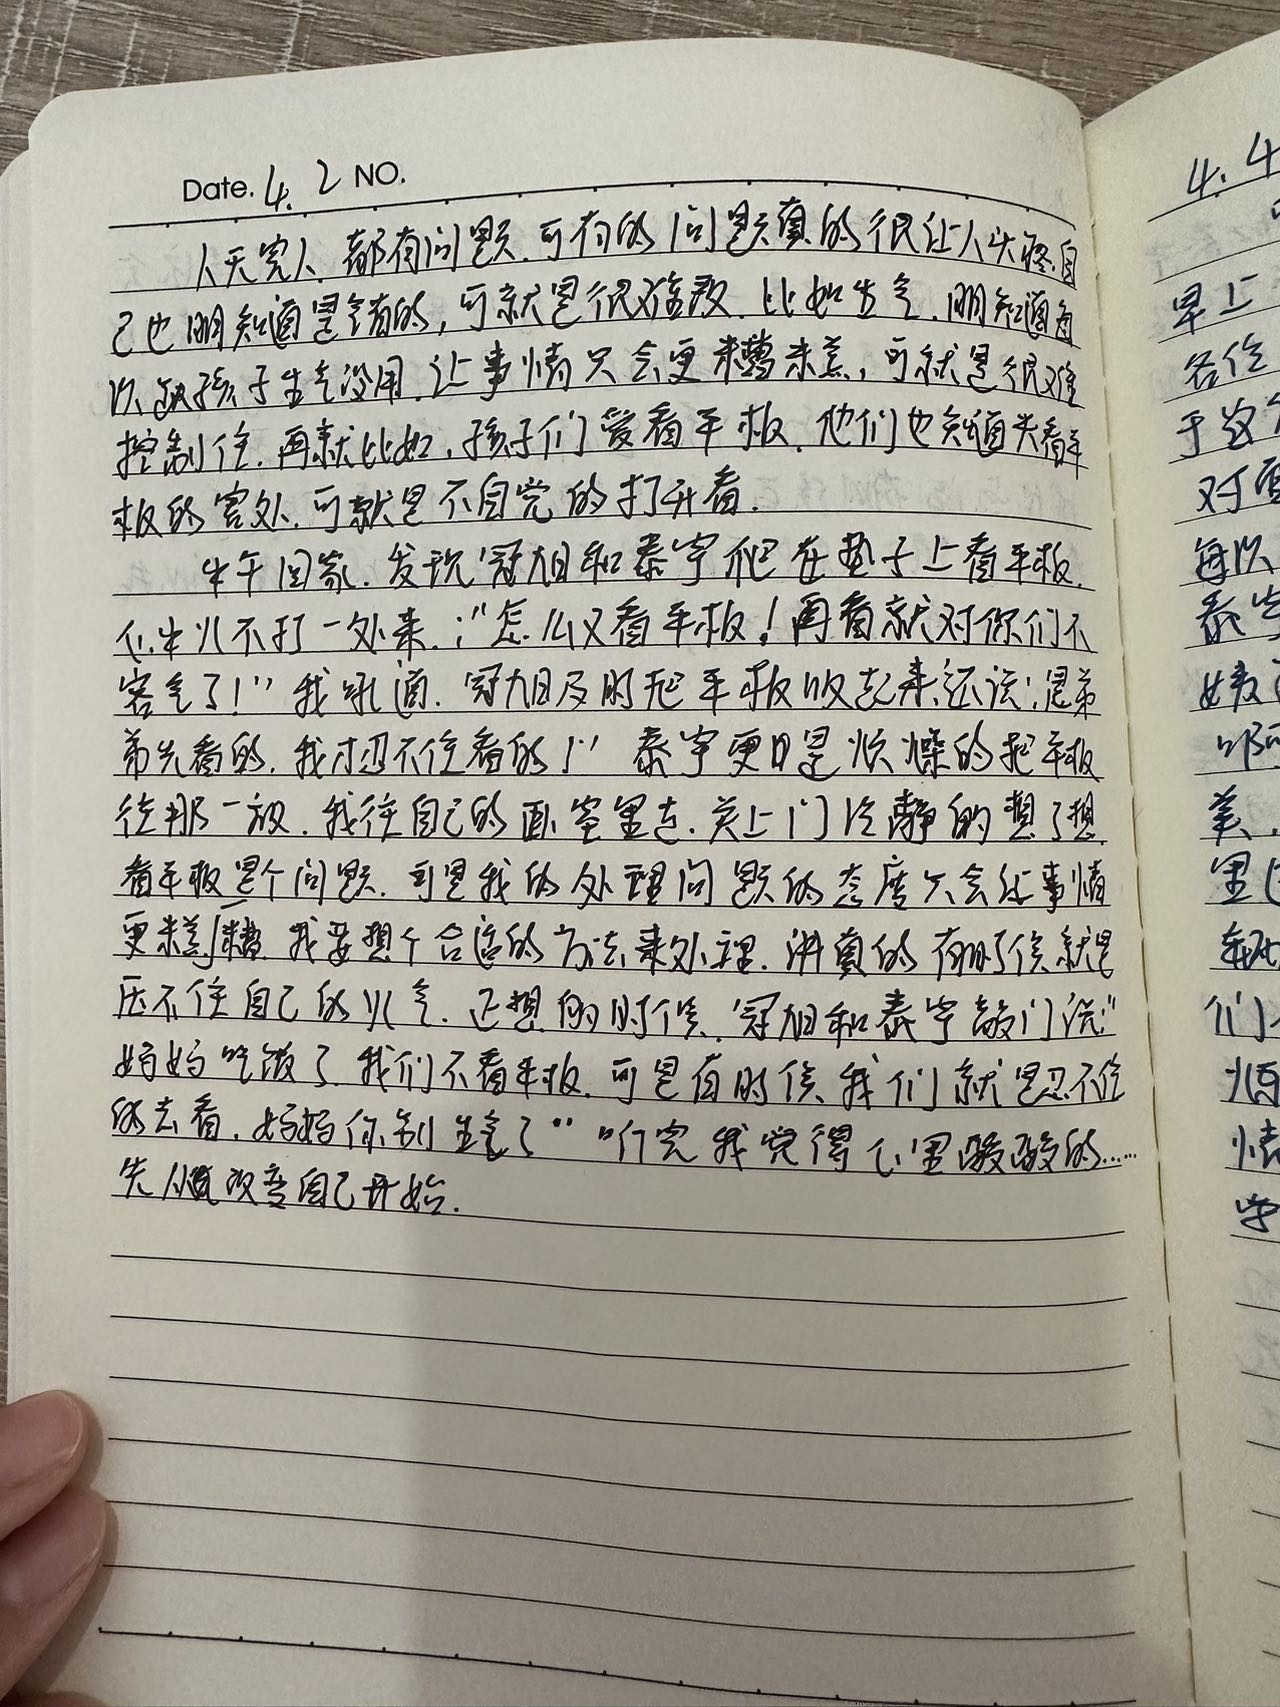 Date. 4. 2 NO.
人无完人,都有问题.可有的问题真的很让人头疼.自
己也明知道是错的,可就是很难改.比如生气.明知道每
次跟孩子生气没用.让事情只会更糟糕,可就是很难
控制住.再就比如,孩子们爱看平板.他们也知道头看平
板的害处.可就是不自觉的打开看.
中午回家.发现冠旭和泰宇爬在垫子上看平板.
心中火不打一处来.:"怎么又看平板!再看就对你们不
客气了!"我吼道.冠旭及时把平板收起来还说:是弟
弟先看的.我才忍不住看的!"泰宇更是烦燥的把平板
往那一放.我往自己的卧室里走.关上门冷静的想了想.
看平板是个问题.可是我的处理问题的态度只会让事情
更糕糟.我要想个合适的方法来处理.讲真的有时候就是
压不住自己的火气.正想的时候.冠旭和泰宇敲门说:"
妈妈吃饭了.我们不看平板.可是有时候我们就是忍不住
的去看.妈妈你别生气了""听完我觉得心里酸酸的……
先从改变自己开始.
4. 4
早上
各位
于这
对面
每次
泰宇
里
们
情
学